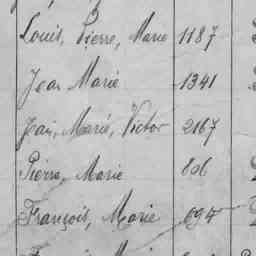 Louis, Pierre, Marie 1187
Jean Marie 1341
Jean, Marie, Victor 2167
Pierre, Marie 806
François, Marie 694